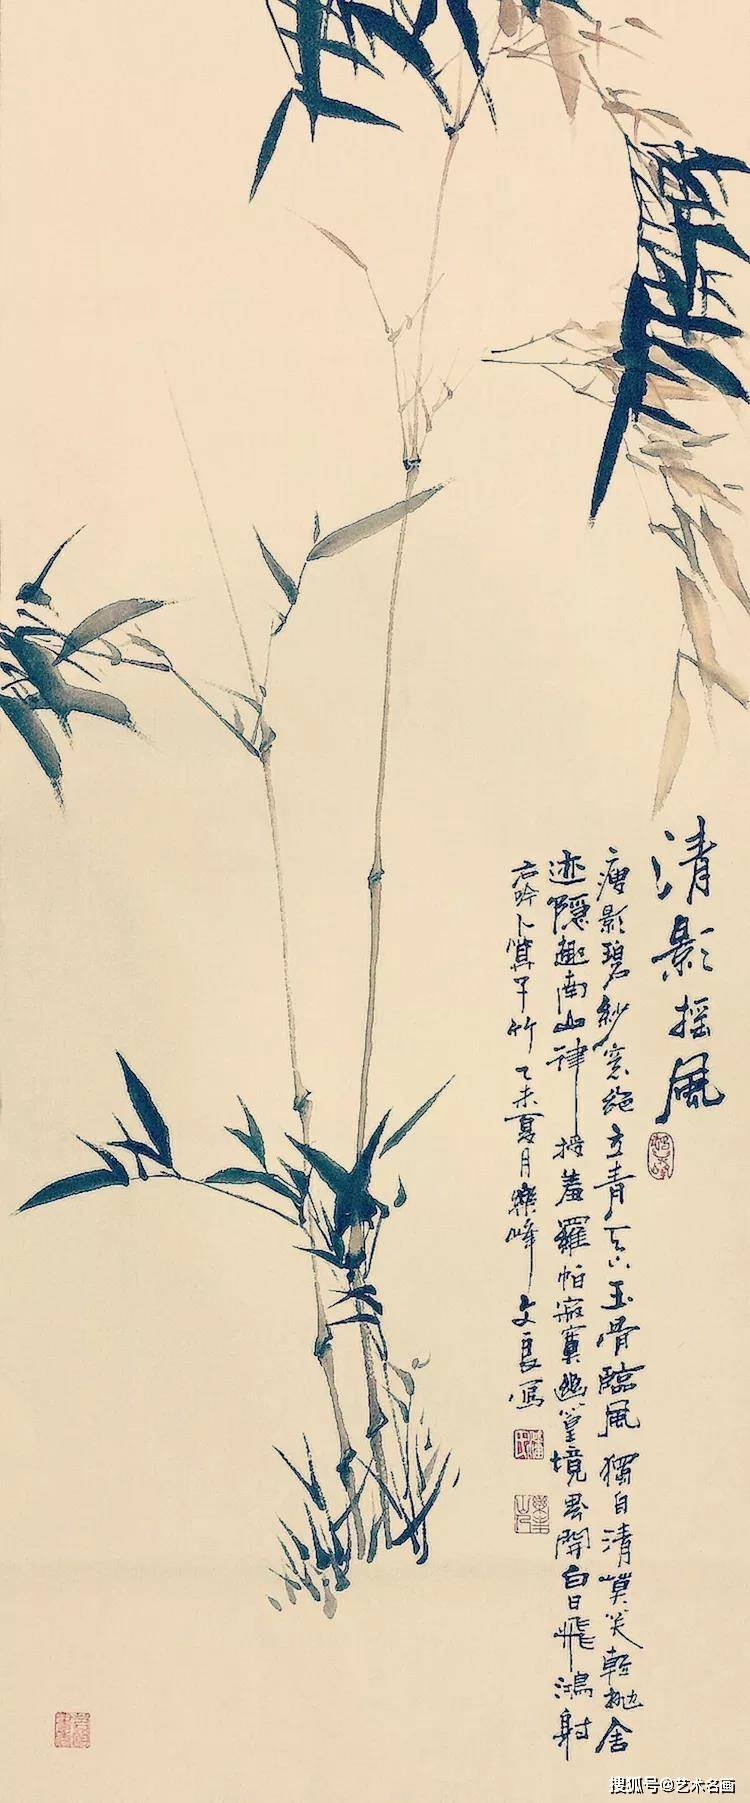 清影摇風
瘦影碧紗窓絶立青玉骨臨風獨自清笑輕抛舍
迹隱趣南山律授羞羅帕寂寞幽篁境界開白日飛鴻射
右吟卜算子竹乙未夏月樂峰文良寫
搜狐号@艺术名画